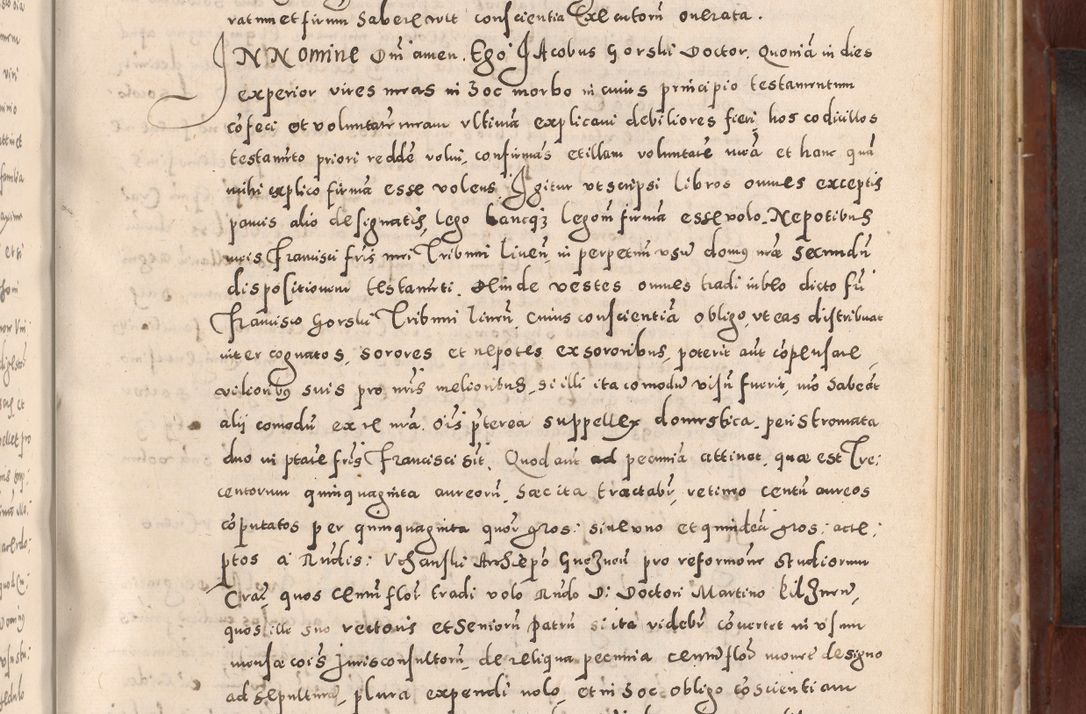 ratum et firmum habere velit conscientia Executorū onerata.
IN Nomine Dni amen. Ego Jacobus Gorski Doctor. Quoniā in dies
experior vires meas in hoc morbo in cuius principio testamentum
cōfeci et voluntatē meam vltimā explicaui debiliores fieri, hos codicillos
testamēto priori reddē volui, confirmās et illam voluntatē meā et hanc quā
mihi explico firmā esse volens. Igitur vt scripsi libros omnes exceptis
paucis alio designatis, lego hancq3 legom firmā esse volo. Nepotibus
meis Francisci fris mei Tribuni Liuen̄ in perpetuū vsū domq mēæ Secundū
dispositionem testamēti. Deinde vestes omnes tradi iubeo dicto frī
Francisco Gorski Tribuni Liuen̄, cuius conscientiā obligo, vt eas distribuat
inter cognatos, sorores et nepotes ex sororibus, poterit aūt cōpensare
vilioribq suis pro meis melioribus, si illi ita comodū visū fuerit, mō habeāt
alij comodū ex re mea. Ois pterea suppellex domestica, peristromata
duo in ptate fris Francisci sit. Quod aūt ad pecuniā attinet, quæ est Tre:
centorum quinquaginta aureorū, hæc ita tractabr, retimo centū aureos
cōputatos per quinquaginta quor gros: siue vno et quindeā gros: acce:
ptos a Rndis: Vchanski Archiepō Gneznen̄ pro reformone studiorum
Crac̄, quos centū flor tradi volo Rndo Di Doctori Martino Kilznen̄,
quos ille suo rectoris et Seniorū patrū si ita videbr cōuertet in vsum
mensæ cois Jurisconsultorū, de reliqua pecunia centū flor monet designo
ad sepulturā, plura expendi nolo, et in hoc obligo cōscientiam